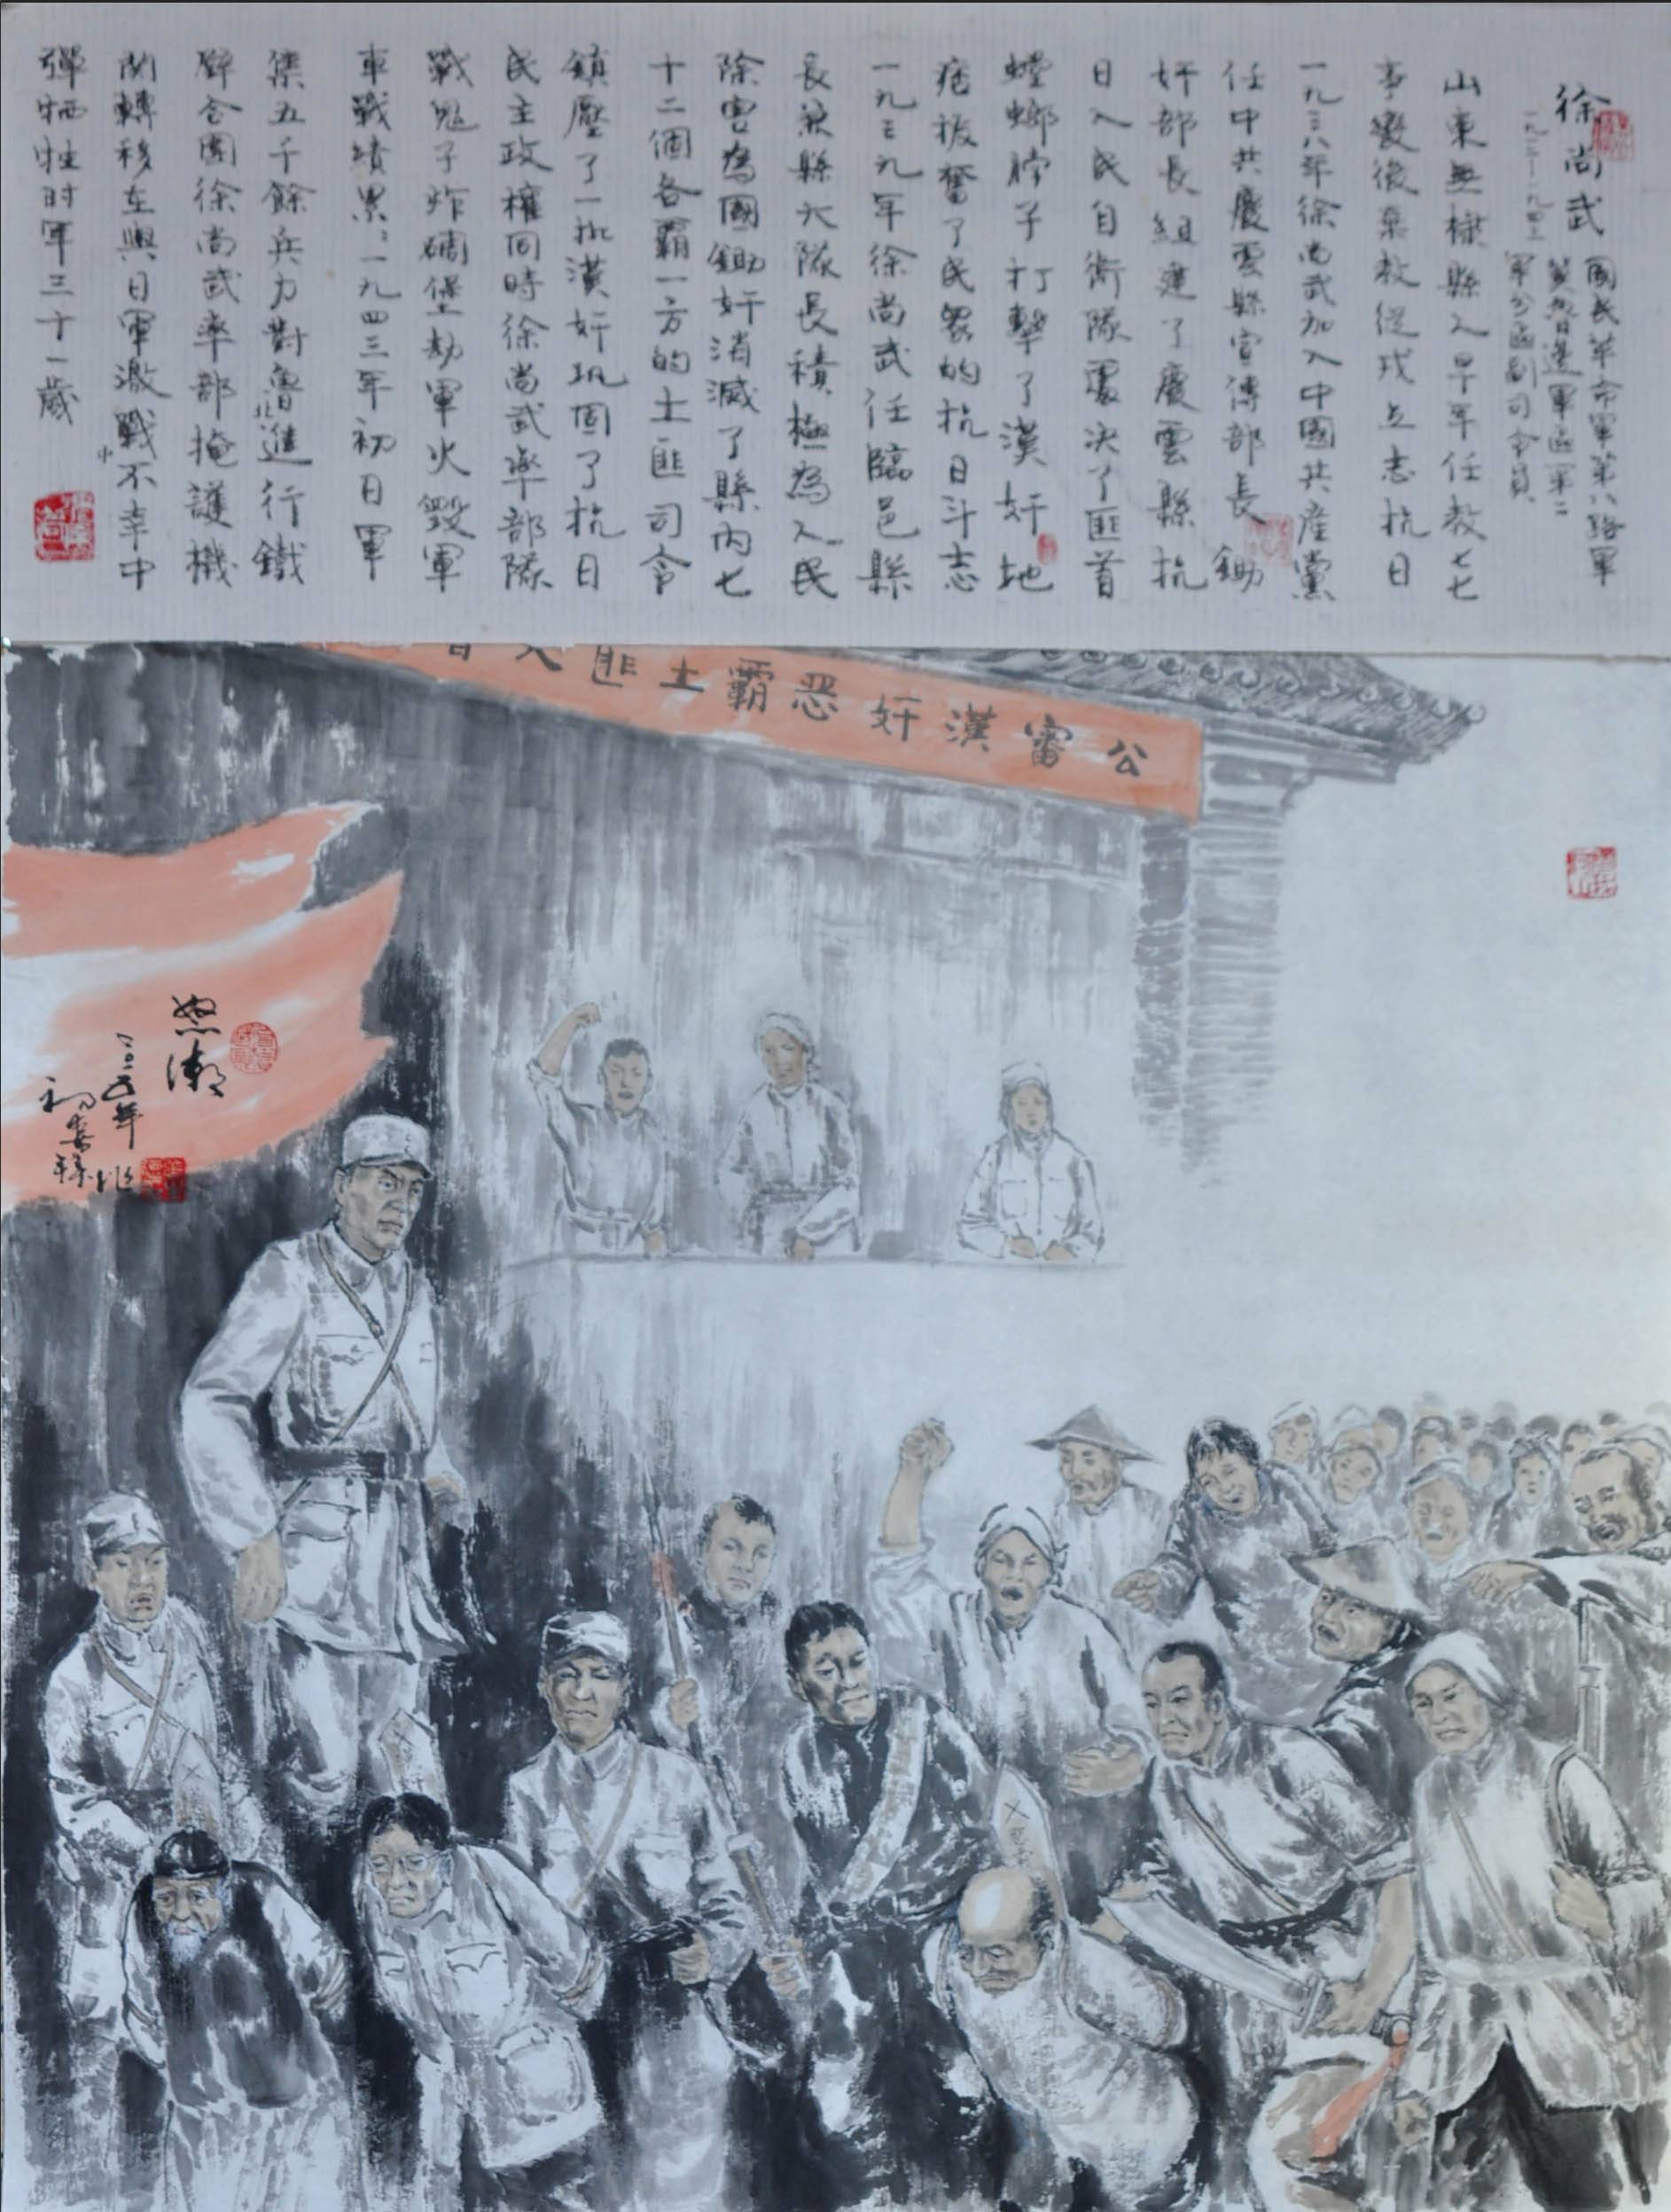 徐尚武
一九一二——一九四三
國民革命軍第八路軍
冀魯邊軍區第二
軍分區副司令員
山東無棣縣人早年任教七七
事變後棄教從戎立志抗日
一九三八年徐尚武加入中國共産黨
任中共慶雲縣宣傳部長 鋤
奸部長組建了慶雲縣抗
日人民自衛隊處决了匪首
螳螂脖子打擊了漢奸地
痞振奮了民眾的抗日斗志
一九三九年徐尚武任臨邑縣
長兼縣大隊長積極為人民
除害為國鋤奸消滅了縣內七
十二個各霸一方的土匪司令
鎮壓了一批漢奸巩固了抗日
民主政權同時徐尚武率部隊
戰鬼子炸碉堡劫軍火毀軍
車戰績累:一九四三年初日軍
集五千餘兵力對魯北進行鐵
壁合圍徐尚武率部掩護機
関轉移在與日軍激戰中不幸中
彈牺牲时年三十一歲
公審漢奸恶霸土匪大
怒潮
二〇一五年
初春
作